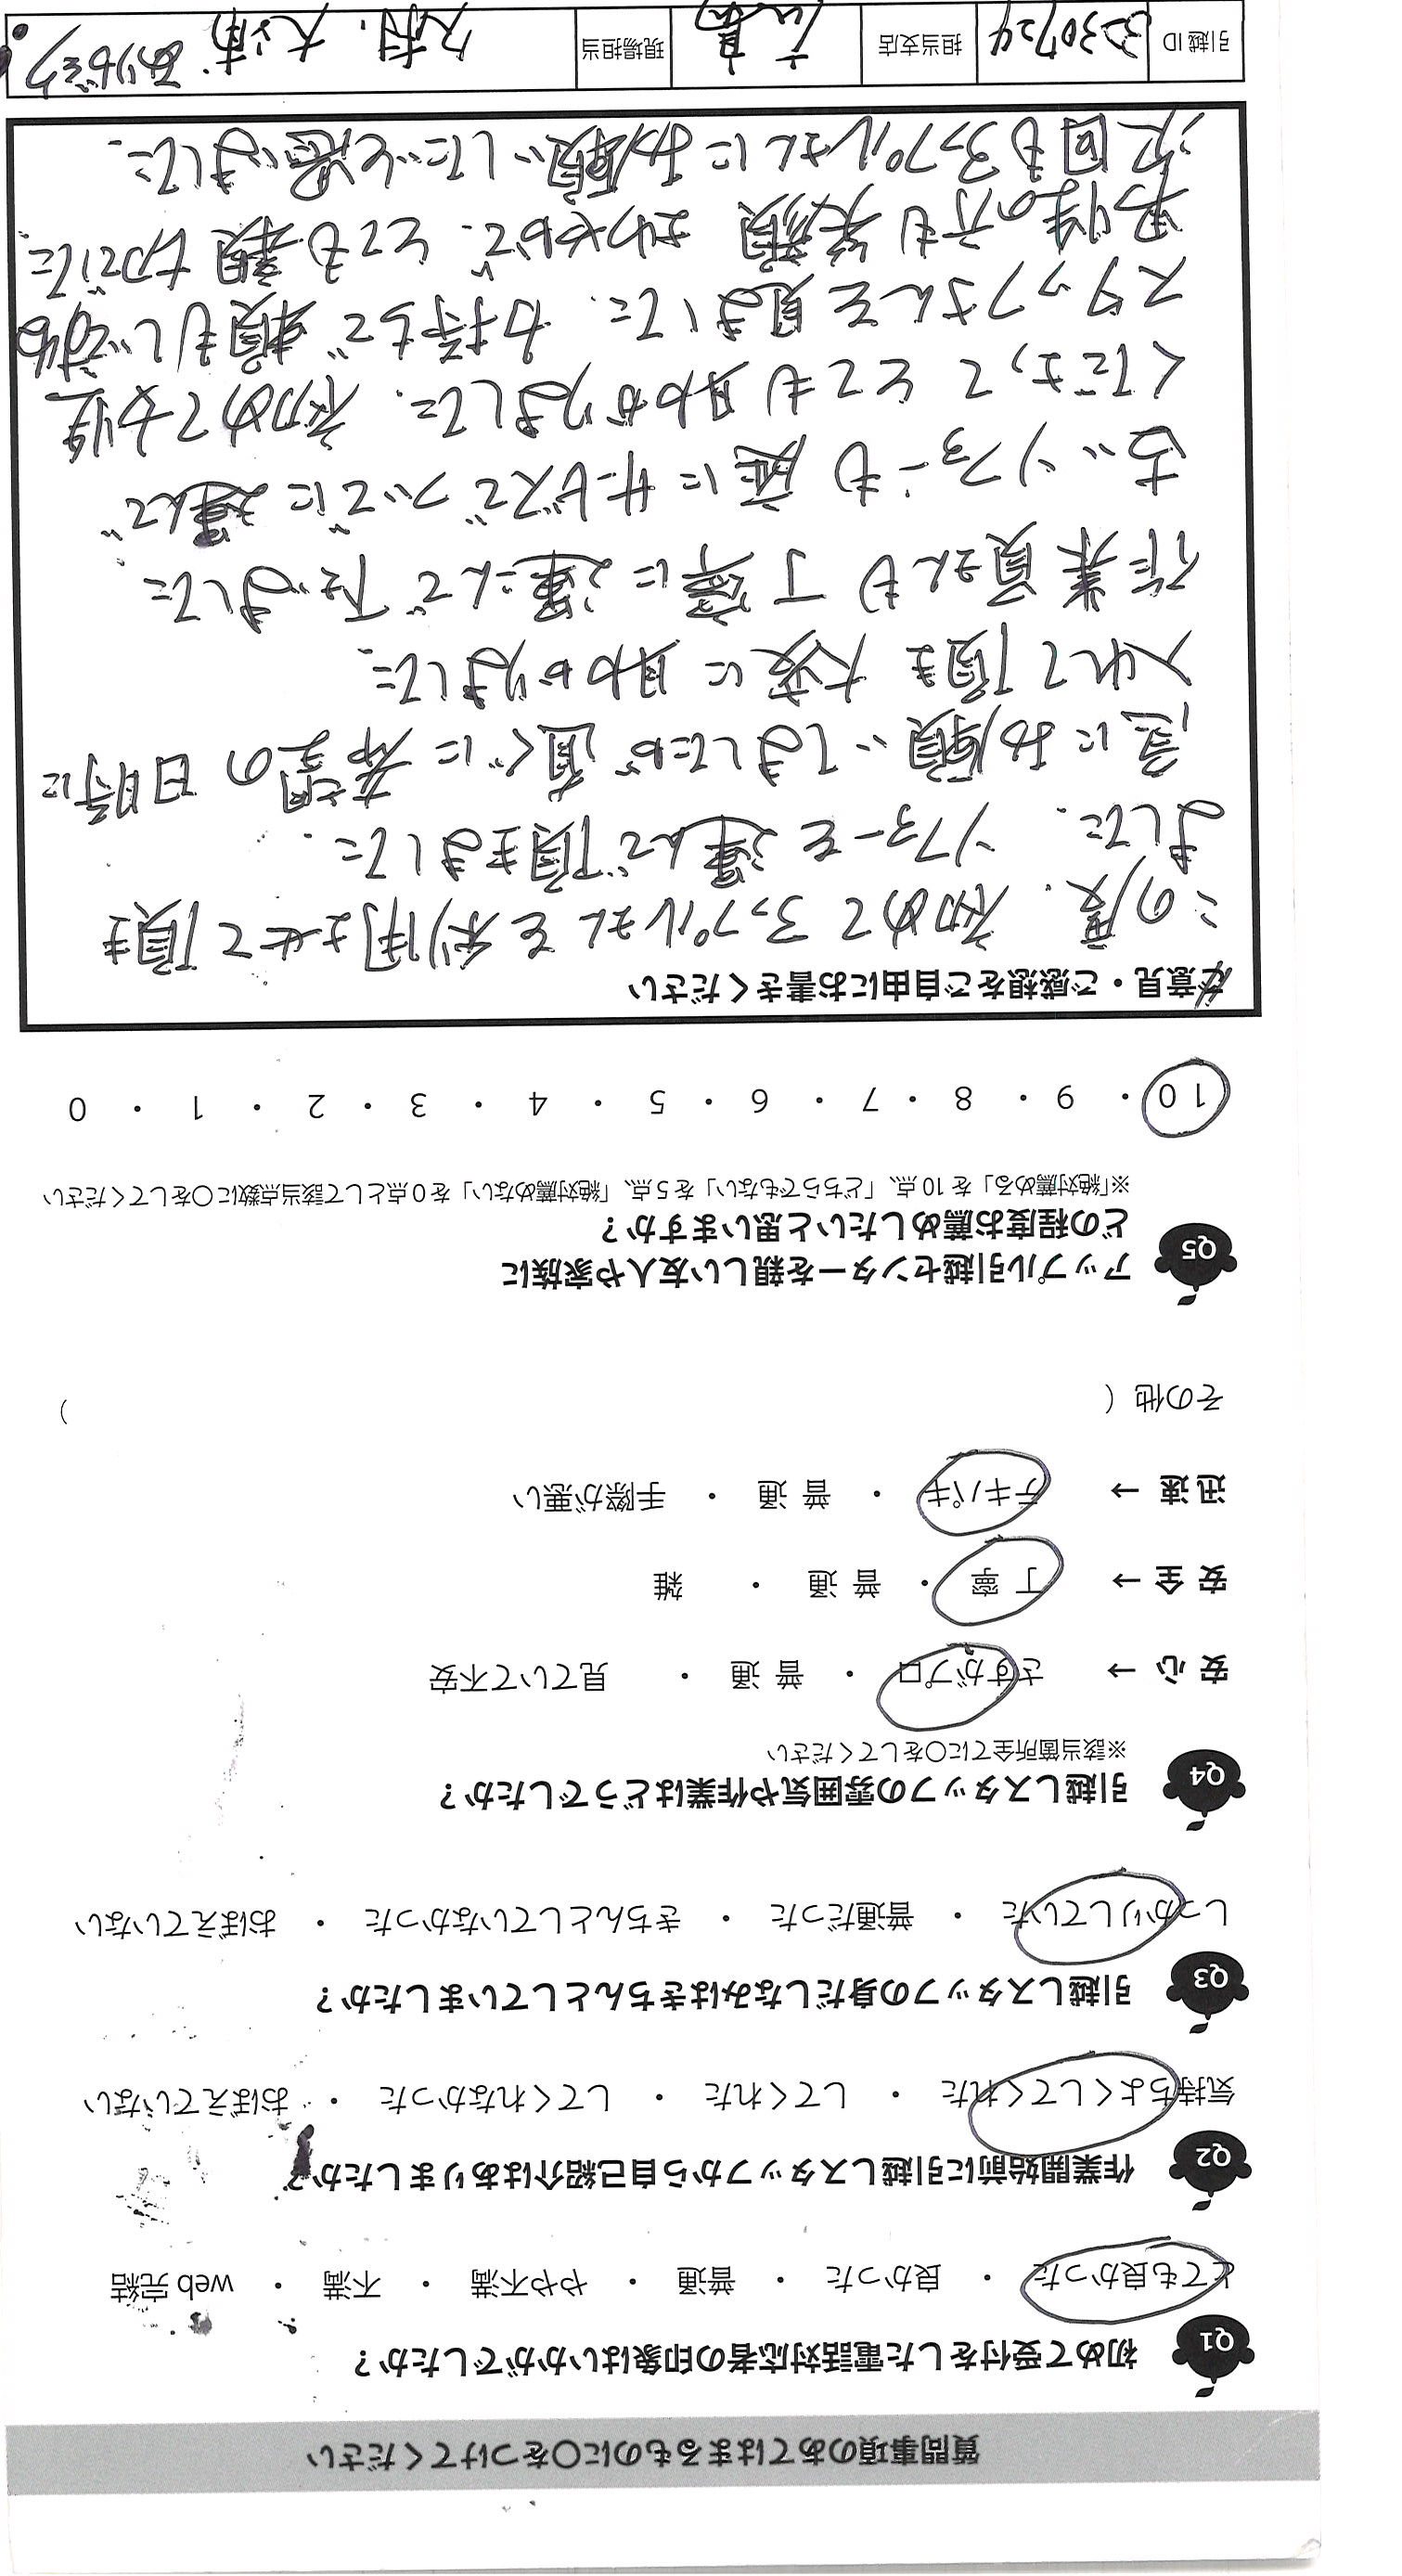 質問事項のあてはまるものに〇をつけてください
Q1 初めて受付をした電話対応者の印象はいかがでしたか?
とても良かった ・ 良かった ・ 普通 ・ やや不満 ・ 不満 ・ web 完結
Q2 作業開始前に引越しスタッフから自己紹介はありましたか?
気持ちよくしてくれた ・ してくれた ・ してくれなかった ・ おぼえていない
Q3 引越しスタッフの身だしなみはきちんとしていましたか?
しっかりしていた ・ 普通だった ・ きちんとしていなかった ・ おぼえていない
Q4 引越しスタッフの雰囲気や作業はどうでしたか?
※該当箇所全てに〇をしてください
安 心 → さすがプロ ・ 普 通 ・ 見ていて不安
安 全 → 丁 寧 ・ 普 通 ・ 雑
迅 速 → テキパキ ・ 普 通 ・ 手際が悪い
その他 ( )
Q5 アップル引越センターを親しい友人や家族に
どの程度お薦めしたいと思いますか?
※「絶対薦める」を 10 点、「どちらでもない」を 5 点、「絶対薦めない」を 0 点として該当点数に〇をしてください
10 ・ 9 ・ 8 ・ 7 ・ 6 ・ 5 ・ 4 ・ 3 ・ 2 ・ 1 ・ 0
ご意見・ご感想をご自由にお書きください
この度、初めてアップルさんを利用させて頂き
ました。ソファーを運んで頂きました。
急にお願いしましたが直ぐに希望の日時に
入れて頂き大変に助かりました。
作業員さんも丁寧に運こんで下さいました
古いソファーも庭にサービスでついでに運んで
くださってとても助かりました。初めて女性
スタッフさんを見ました。力持ちで頼もしい
男性の方も笑顔さわやかで、とても親切でした。
次回もアップルさんにお願いしたいと思いました。
引越 ID 3230724 担当支店 広島 現場担当 久村、大浦 ありがとう!